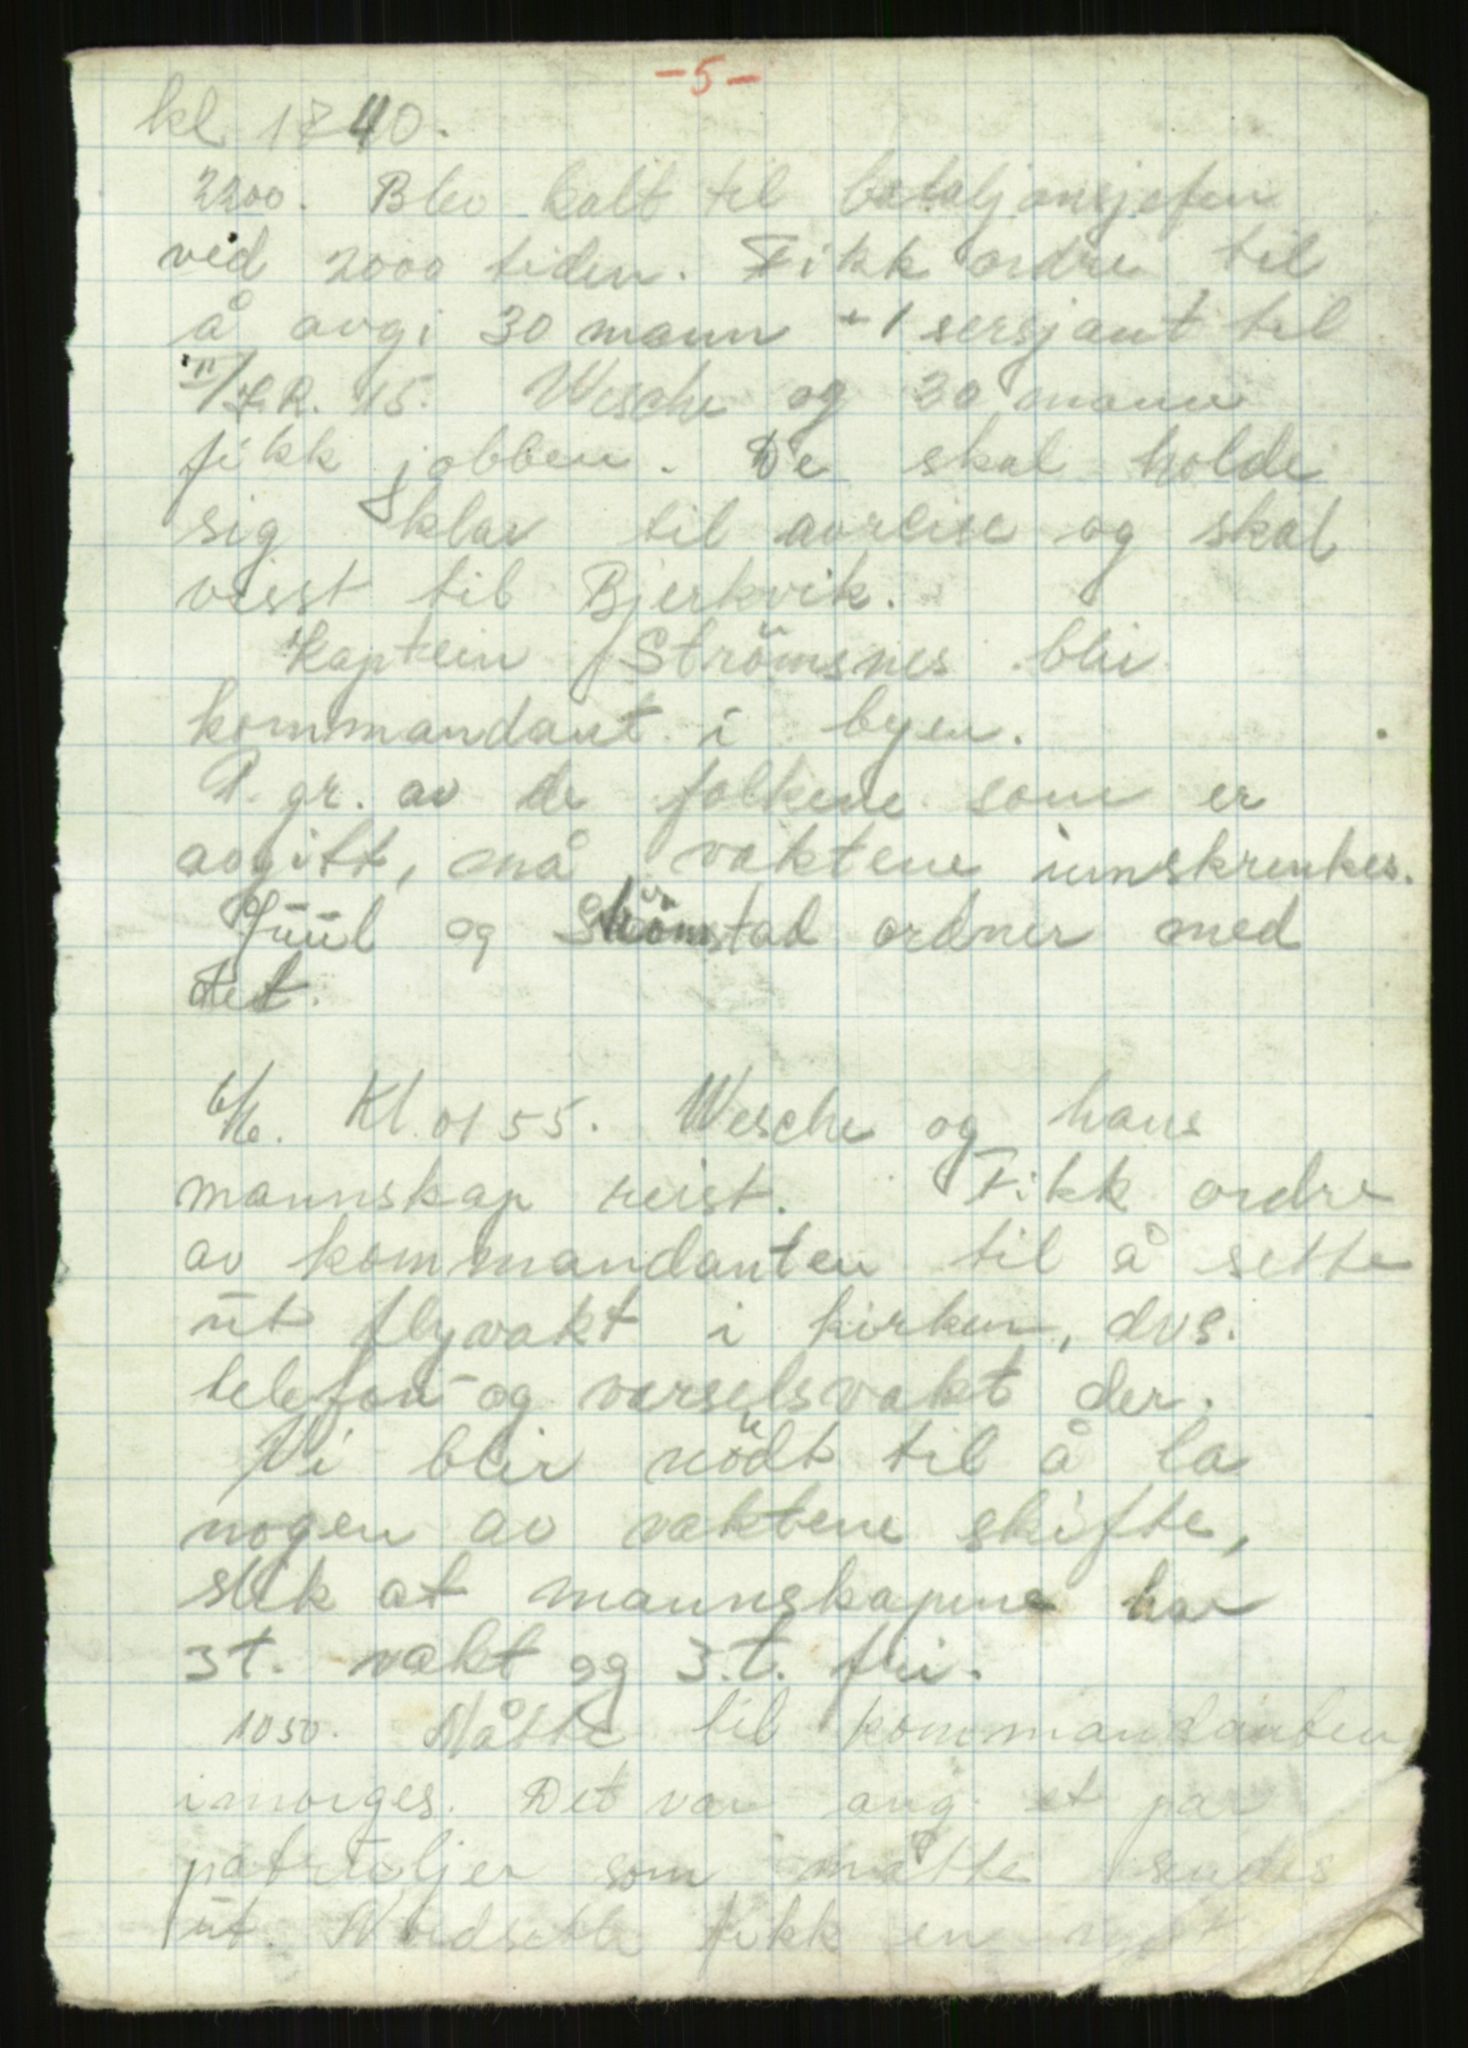 -5-
kl 1840.
2200. Blev kalt til bataljonsjefen
ved 2000 tiden. Fikk ordre til
å avgi 30 mann + 1 sersjant til
II/I.R. 15. Wesche og 30 mann
fikk jobben. De skal holde
sig klar til avreise og skal
visst til Bjerkvik.
Kaptein Strömsnes blir
kommandant i byen.
P. gr. av de folkene som er
avgitt, må vaktene innskrenkes.
Juul og Strömstad ordner med
det.
6/6. Kl. 0155. Wesche og hans
mannskap reist. Fikk ordre
av kommandanten til å sette
ut flyvakt i kirken, dvs.
telefon- og varselsvakt der.
Vi blir nödt til å la
nogen av vaktene skifte,
slik at mannskapene har
3 t. vakt og 3.t. fri.
1050. Måtte til kommandanten
imorges. Det var ang. et par
patruljer som måtte sendes
ut. fikk en